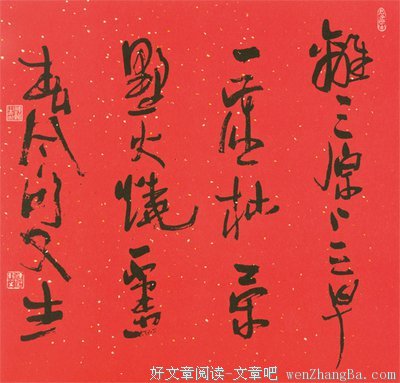 離々原上草
一歲一枯榮
野火燒不盡
春風吹又生
好文章阅读-文章吧 wenZhangBa.com